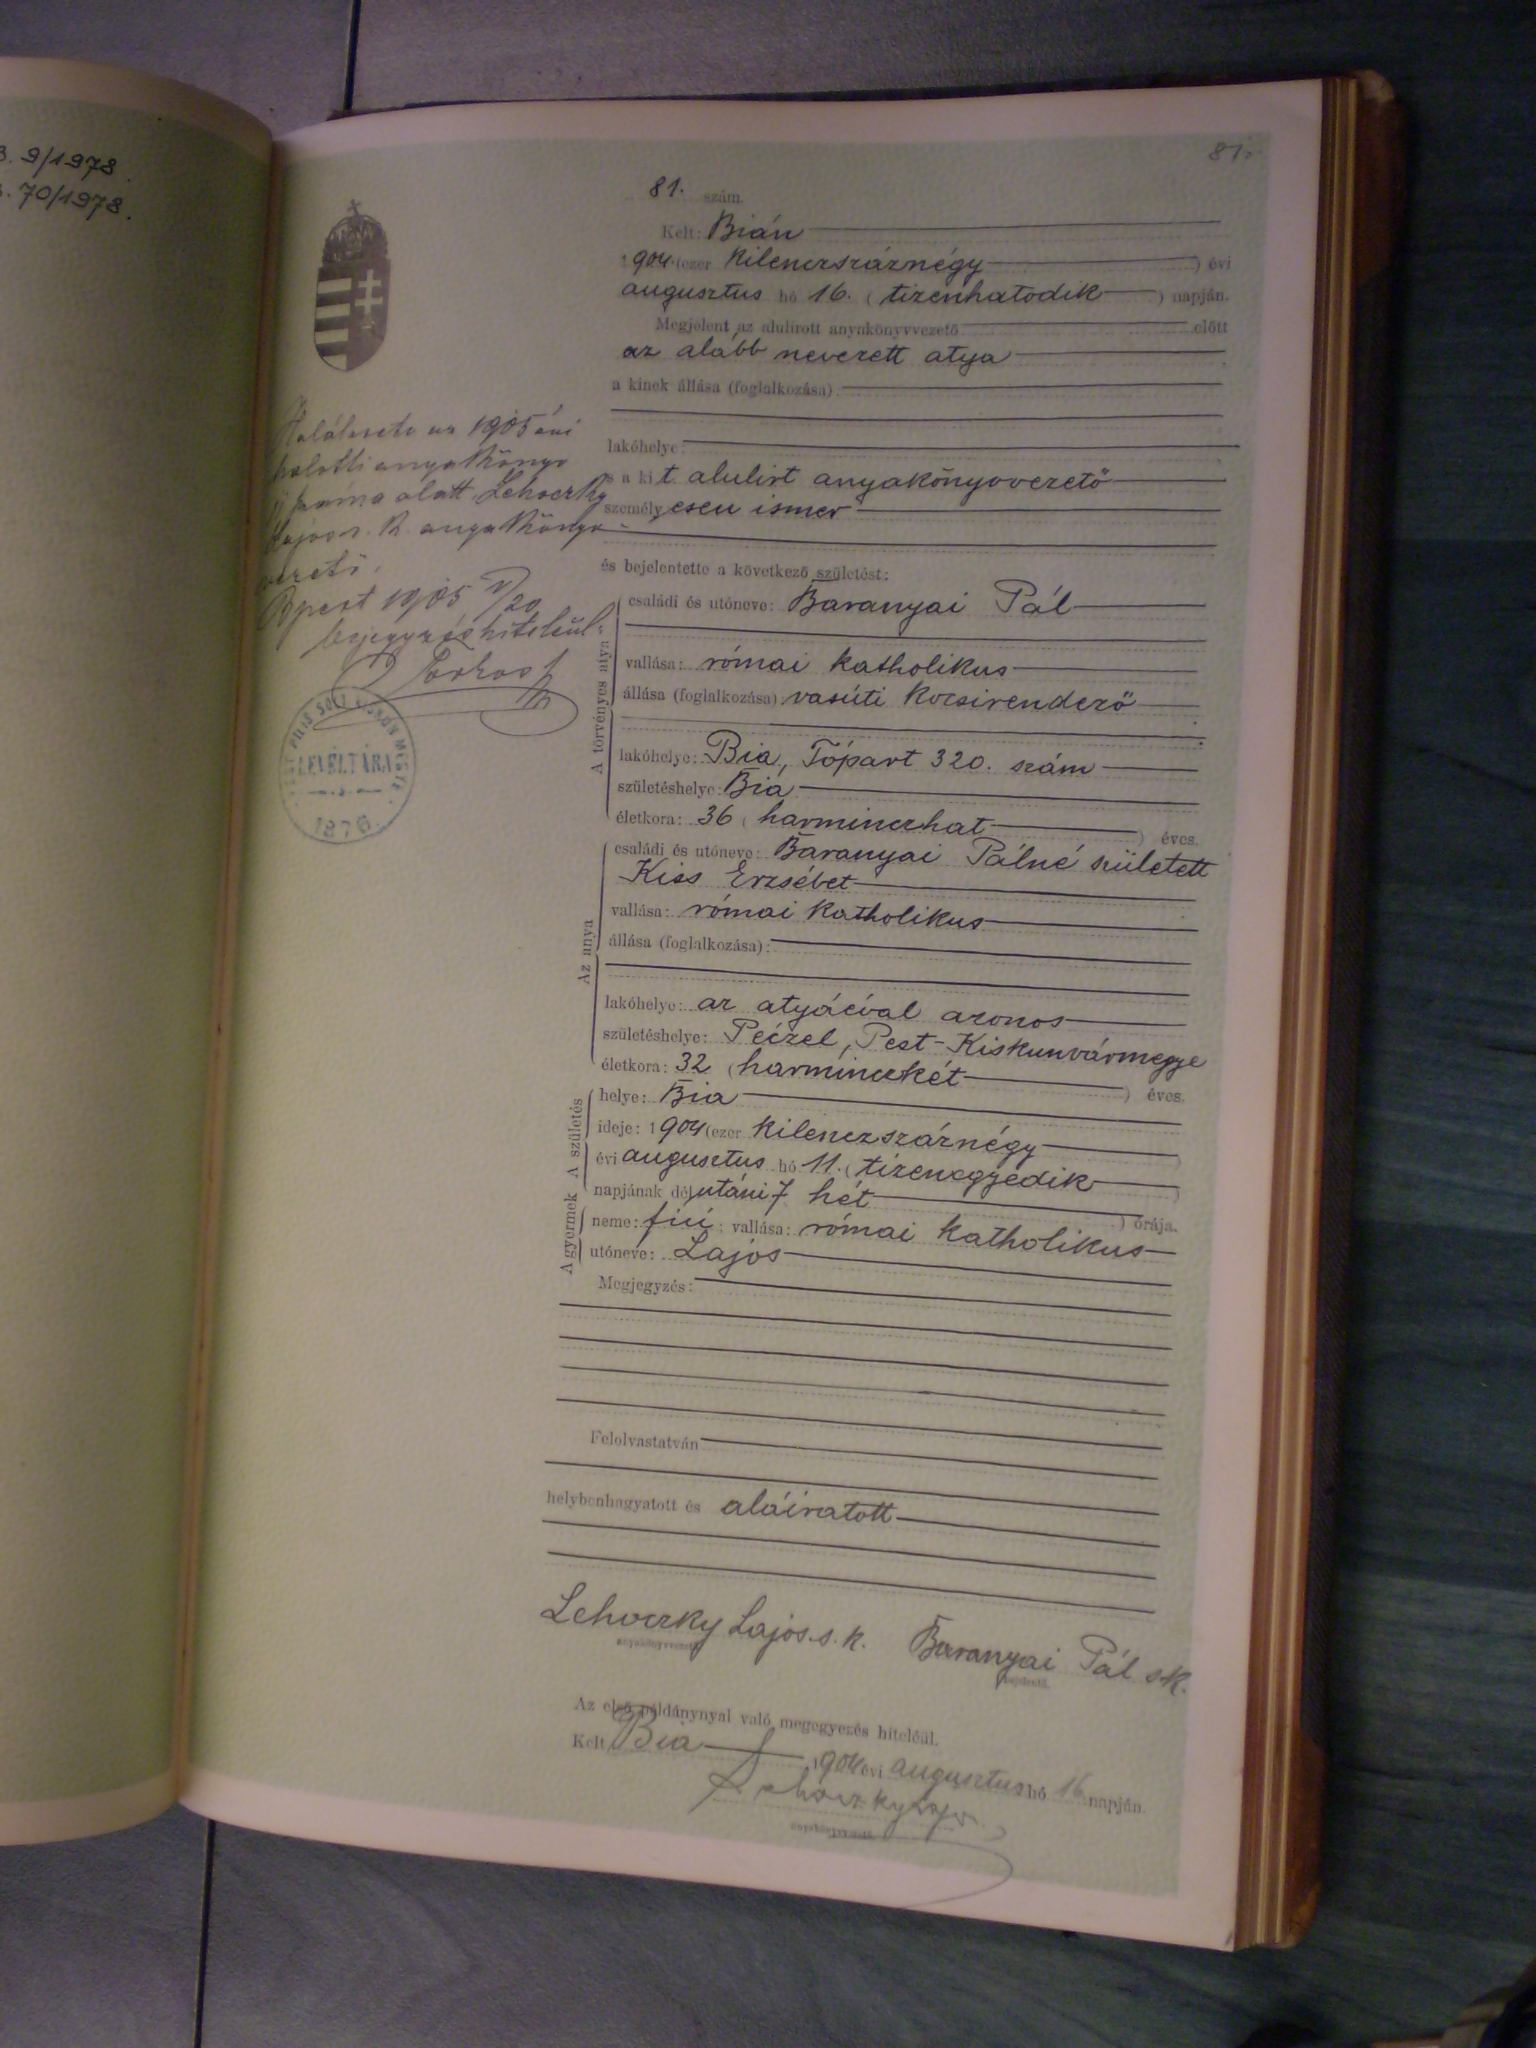 9/1978.
70/1978.
81.
81. szám.
Kelt: Bián
1904 (ezer kilenczszáznégy) évi
augusztus hó 16. (tizenhatodik) napján.
Megjelent az alulirott anyakönyvvezető előtt
az alább nevezett atya
a kinek állása (foglalkozása)
lakóhelye
s a kit alulirt anyakönyvvezető
személyesen ismer
és bejelentette a következő születést:
A törvényes atya
családi és utóneve: Baranyai Pál
vallása: római katholikus
állása (foglalkozása): vasúti kocsirendező
lakóhelye: Bia, Tópart 320. szám
születéshelye: Bia
életkora: 36 (harminczhat) éves.
Az anya
családi és utóneve: Baranyai Pálné született
Kiss Erzsébet
vallása: római katholikus
állása (foglalkozása):
lakóhelye: az atyáéval azonos
születéshelye: Péczel, Pest-Kiskunvármegye
életkora: 32 (harminczkét) éves.
A születés
helye: Bia
ideje: 1904 (ezer kilenczszáznégy)
évi augusztus hó 11. (tizenegyedik)
napjának délutáni 7 hét) órája.
A gyermek
neme: fiú; vallása: római katholikus
utóneve: Lajos
Megjegyzés:
Felolvastatván
helybenhagyatott és aláiratott
Lehoczky Lajos s. k. Baranyai Pál sk.
anyakönyvvezető
bejelentő.
Az első példánynyal való megegyezés hiteléül.
Kelt Bia 1904 évi augusztus hó 16 napján.
Lehoczky Lajos
anyakönyvvezető
Halálesete az 1905 évi
halotti anyakönyv
száma alatt Lehoczky
Lajos s. k. anyakönyv-
vezető.
Bpest 1905 V/20
bejegyzés hiteléül:
LEVÉLTÁRA
1876